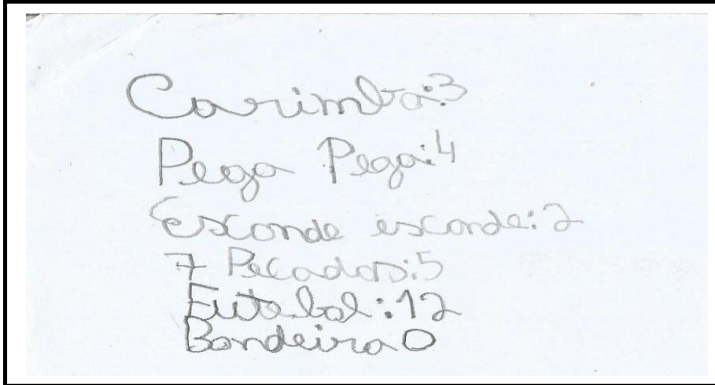 Carimba:3
Pega Pega:4
Esconde esconde:2
7 Pecados:5
Futebol:12
Bandeira 0